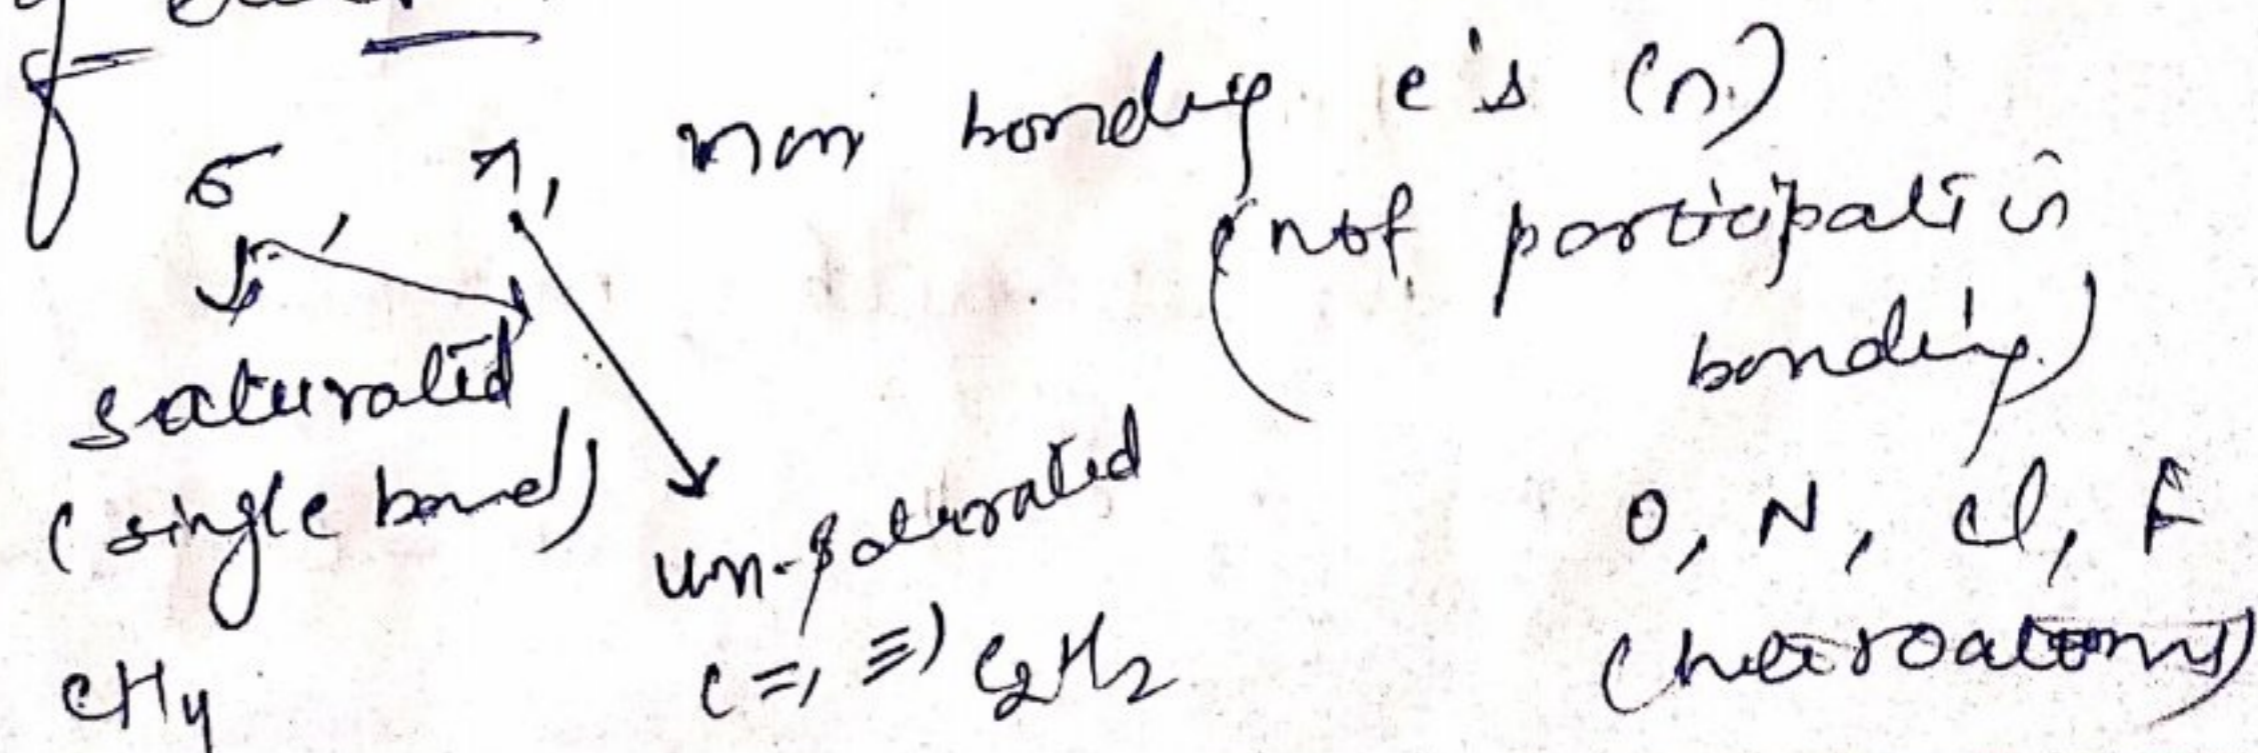 σ, π, non bonding e's (n)
(not participati in
bonding)
saturated
(single bond)
un-saturated
O, N, Cl, F
(=, ≡) C2H2
(heteroatoms)
CH4